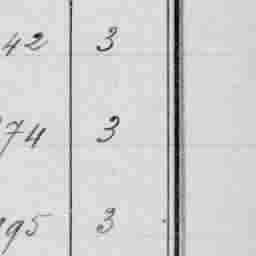 42 3
74 3
95 3